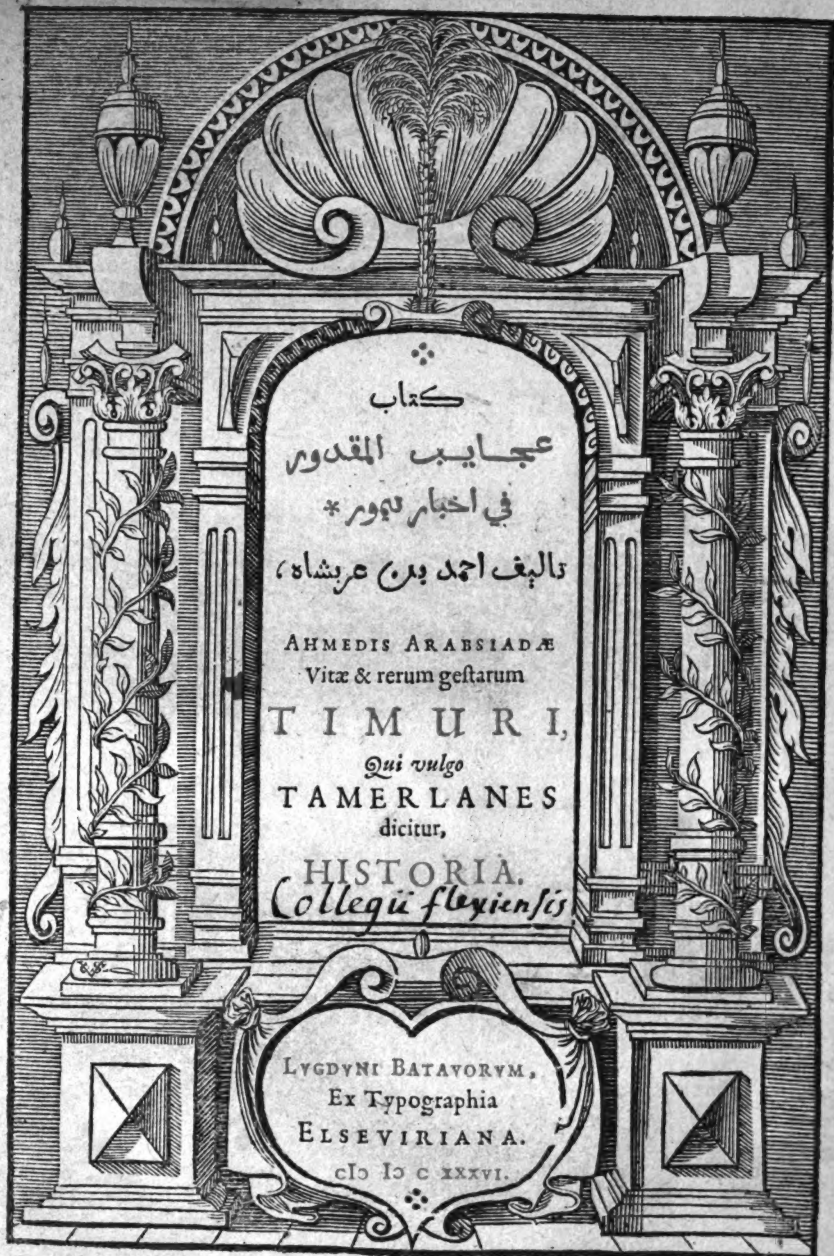 كتاب
عجايب المقدور
في اخبار تيمور *
تاليف احمد بن عربشاه،
AHMEDIS ARABSIADÆ
Vitæ & rerum geſtarum
TIMURI,
Qui vulgo
TAMERLANES
dicitur,
HISTORIA.
Collegii flexiensis
LVGDVNI BATAVORVM,
Ex Typographia
ELSEVIRIANA.
cIɔ Iɔ C XXXVI.